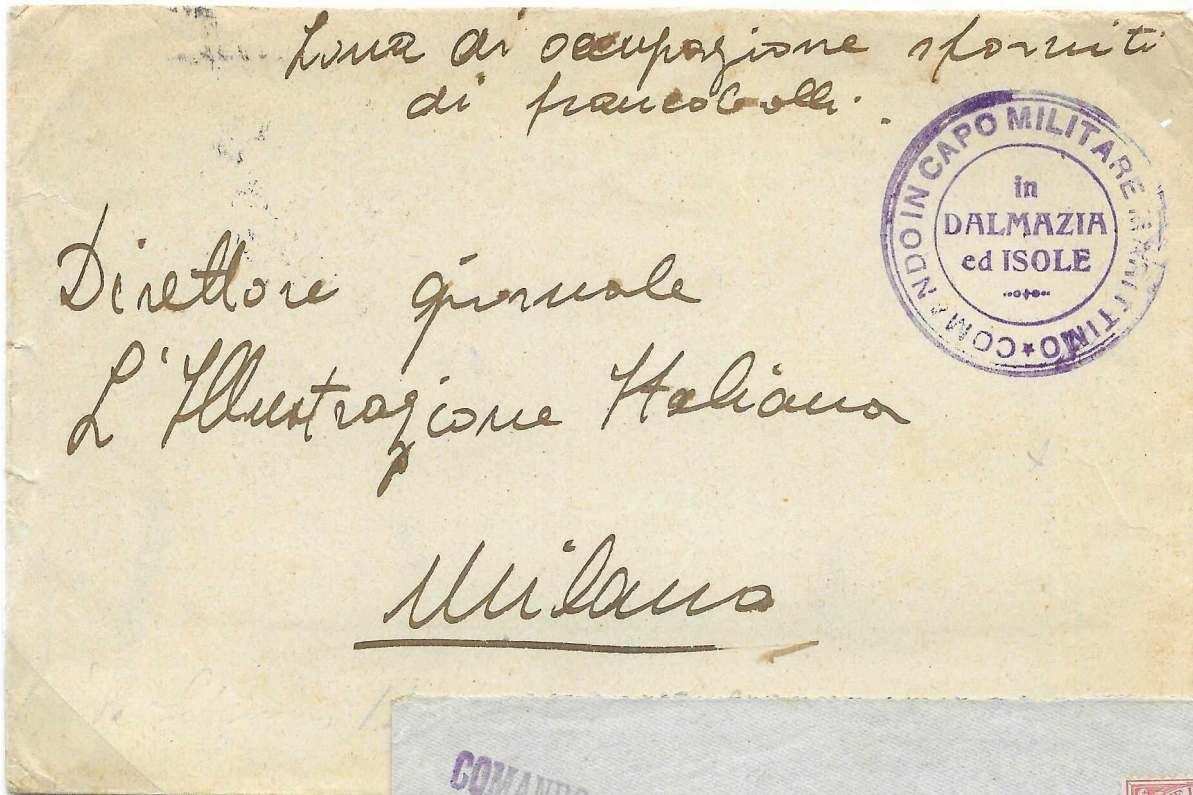 Zona di occupazione sforniti
di francobolli.
COMANDO IN CAPO MILITARE MARITTIMO
in
DALMAZIA
ed ISOLE
Direttore giornale
L'Illustrazione Italiana
Milano
COMANDO